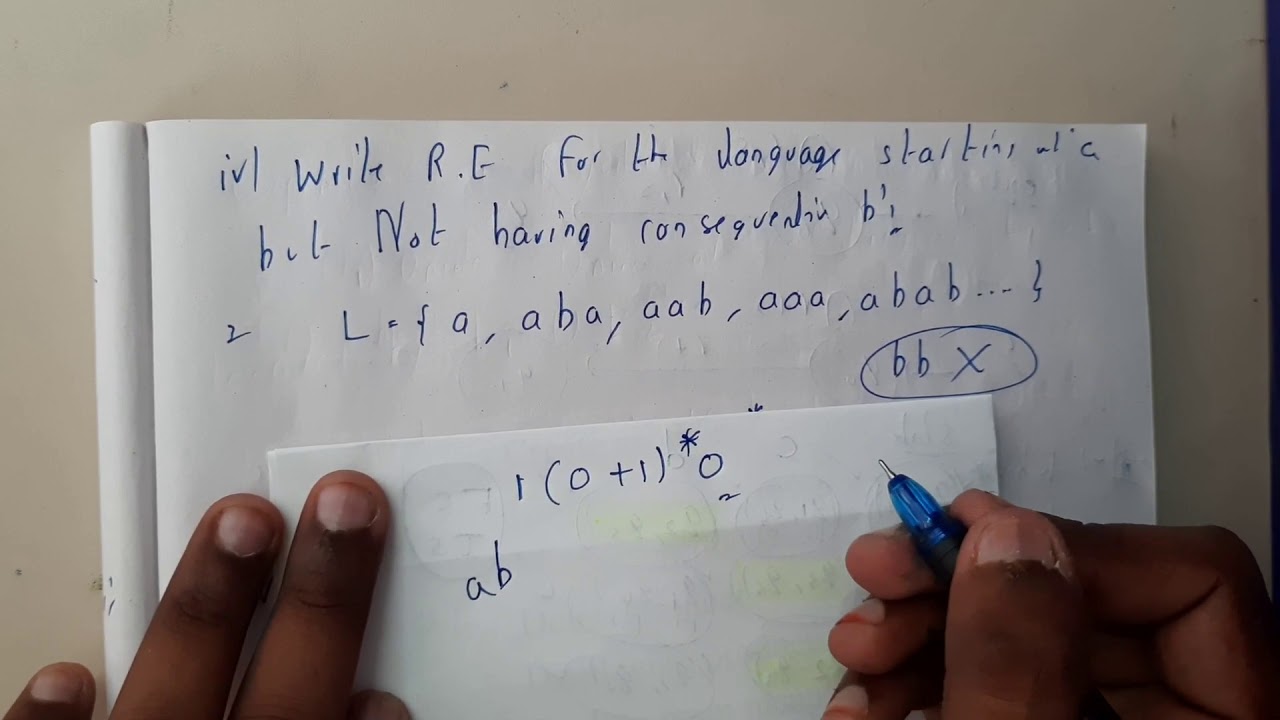 iv) Write R.E for the language starting wt a
but Not having consequentiv b's
2 L = { a, aba, aab, aaa, abab .... }
bb X
1 (0 + 1)* 0
ab